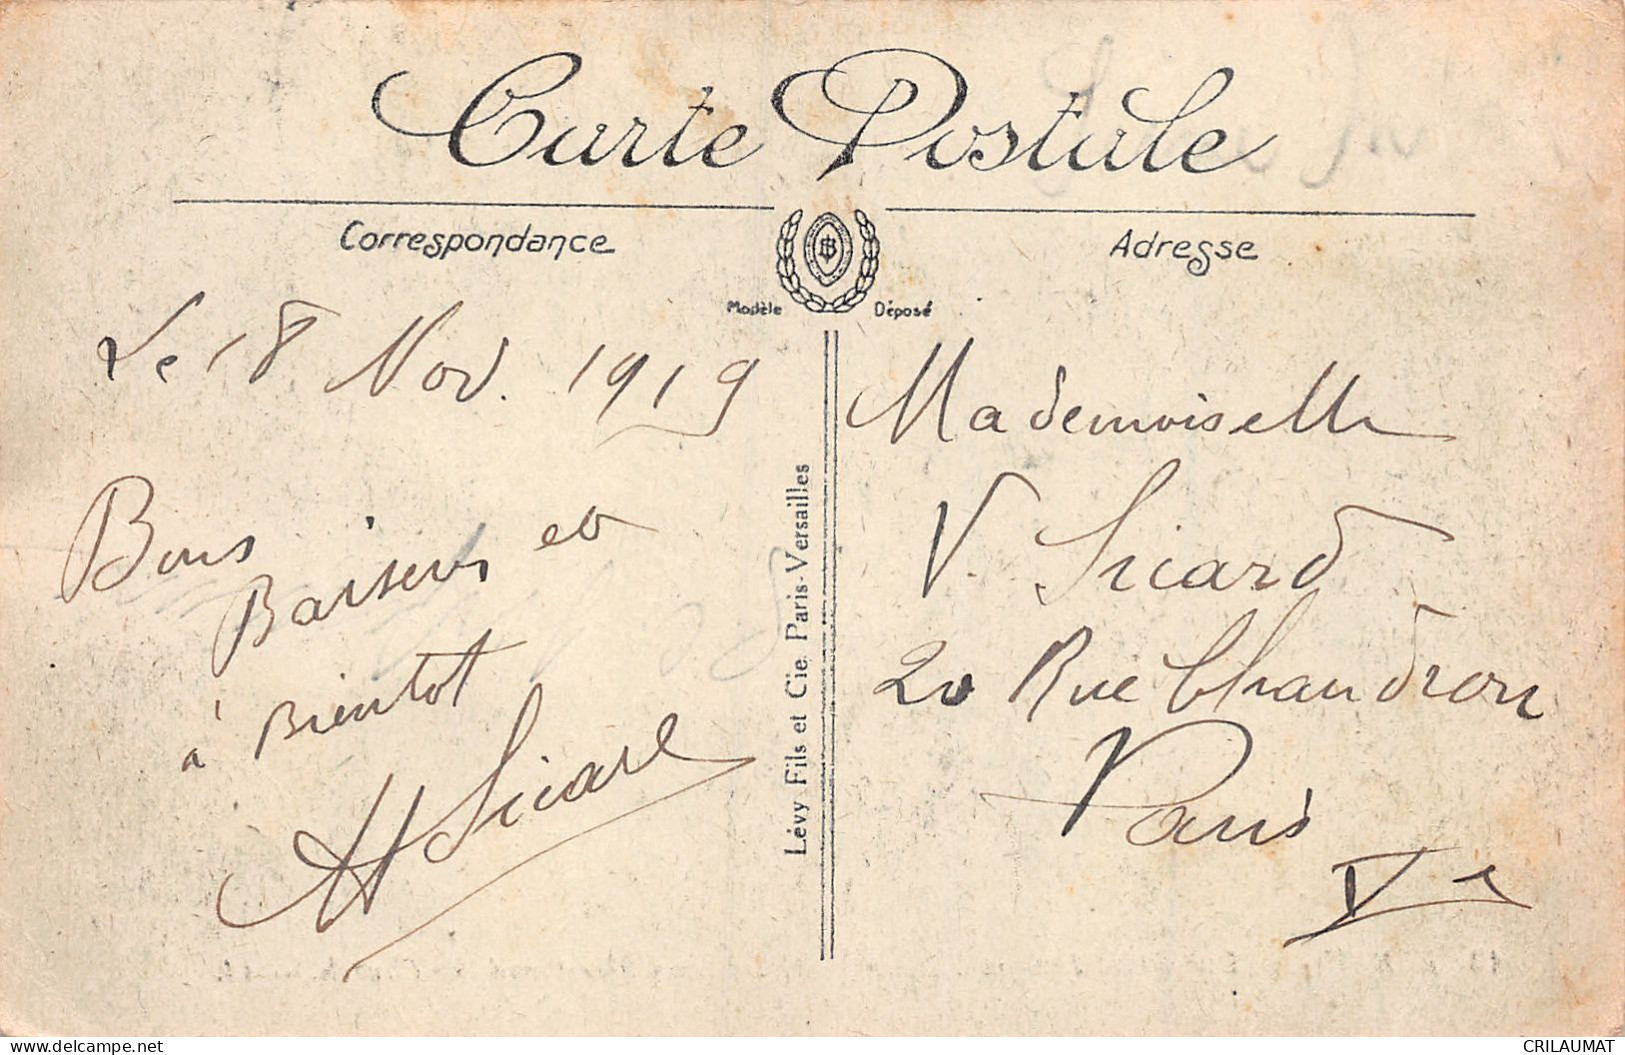 Carte Postale
Correspondance
Adresse
Modèle
Déposé
Le 18 Nov. 1919
Bons
Baisers et
à Bientot
H Sicard
Lévy Fils et Cie. Paris-Versailles
Mademoiselle
V. Sicard
20 Rue Chaudron
Paris
Ve
delcampe.net
CRILAUMAT